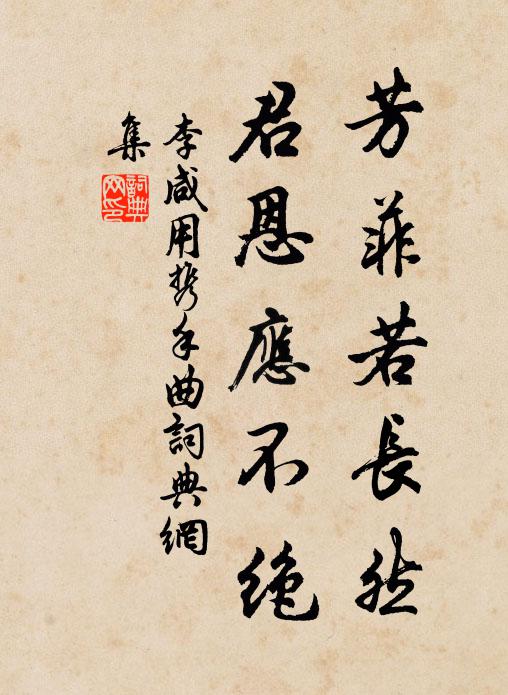 芳菲若長然
君恩應不絶
李咸用携手曲詞典網
集
詞典网印